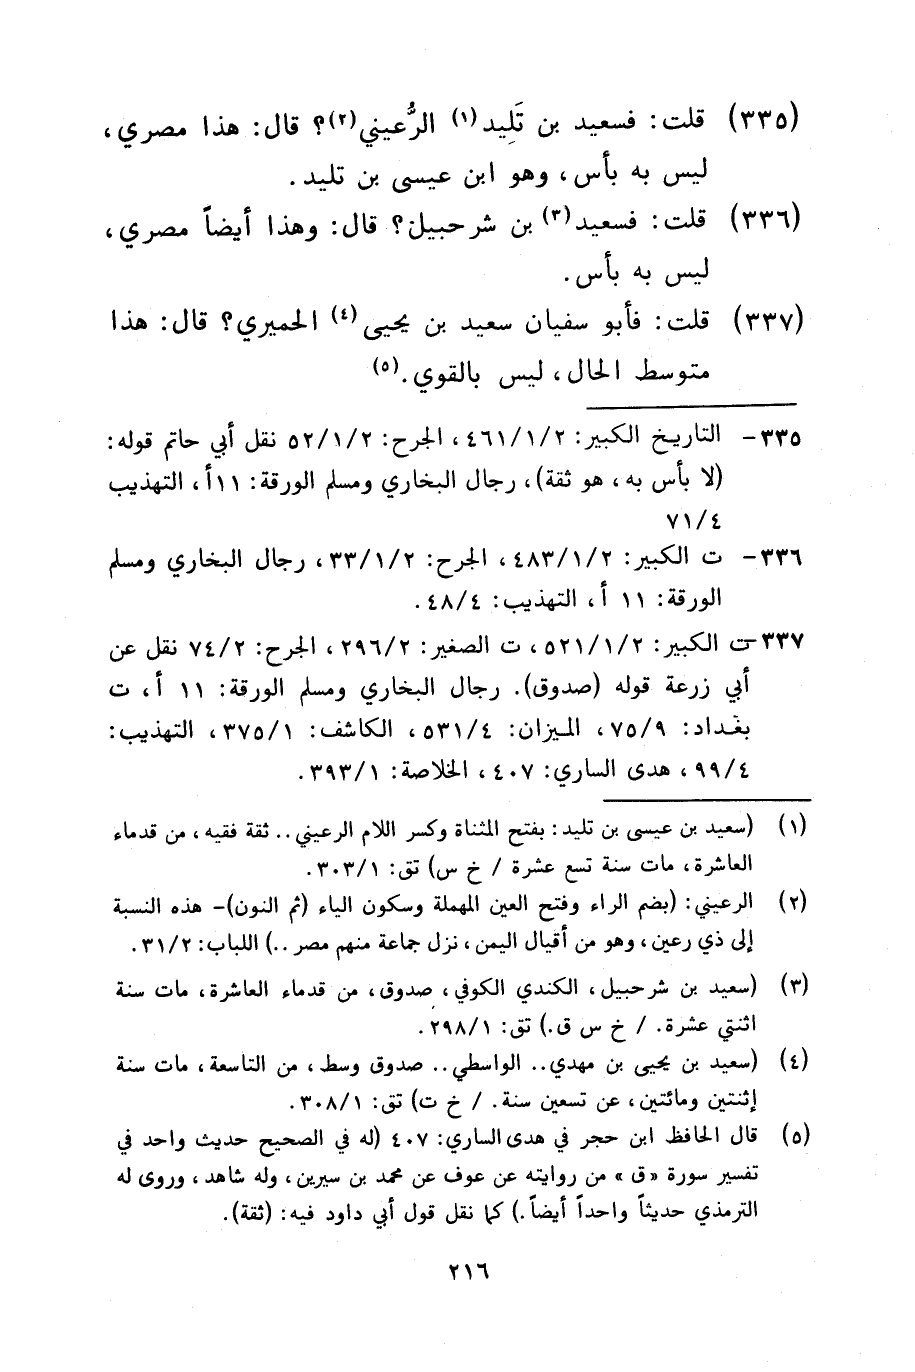 (٣٣٥) قلت: فسعيد بن تَلِيد(١) الرُّعيني(٢)؟ قال: هذا مصري،
ليس به بأس، وهو ابن عيسى بن تليد.
(٣٣٦) قلت: فسعيد(٣) بن شرحبيل؟ قال: وهذا أيضاً مصري،
ليس به بأس.
(٣٣٧) قلت: فأبو سفيان سعيد بن يحيى(٤) الحميري؟ قال: هذا
متوسط الحال، ليس بالقوي.(٥)
٣٣٥- التاريخ الكبير: ٤٦١/١/٢، الجرح: ٥٢/١/٢ نقل أبي حاتم قوله:
(لا بأس به، هو ثقة)، رجال البخاري ومسلم الورقة: ١١أ، التهذيب
٧١/٤
٣٣٦- ت الكبير: ٤٨٣/١/٢، الجرح: ٣٣/١/٢، رجال البخاري ومسلم
الورقة: ١١ أ، التهذيب: ٤٨/٤.
٣٣٧- ت الكبير: ٥٢١/١/٢، ت الصغير: ٢٩٦/٢، الجرح: ٧٤/٢ نقل عن
أبي زرعة قوله (صدوق). رجال البخاري ومسلم الورقة: ١١ أ، ت
بغداد: ٧٥/٩، الميزان: ٥٣١/٤، الكاشف: ٣٧٥/١، التهذيب:
٩٩/٤، هدى الساري: ٤٠٧، الخلاصة: ٣٩٣/١.
(١) (سعيد بن عيسى بن تليد: بفتح المثناة وكسر اللام الرعيني.. ثقة فقيه، من قدماء
العاشرة، مات سنة تسع عشرة / خ س) تق: ٣٠٣/١.
(٢) الرعيني: (بضم الراء وفتح العين المهملة وسكون الياء (ثم النون)- هذه النسبة
إلى ذي رعين، وهو من أقيال اليمن، نزل جماعة منهم مصر ..) اللباب: ٣١/٢.
(٣) (سعيد بن شرحبيل، الكندي الكوفي، صدوق، من قدماء العاشرة، مات سنة
اثنتي عشرة. / خ س ق.) تق: ٢٩٨/١.
(٤) (سعيد بن يحيى بن مهدي.. الواسطي.. صدوق وسط، من التاسعة، مات سنة
إثنتين ومائتين، عن تسعين سنة. / خ ت) تق: ٣٠٨/١.
(٥) قال الحافظ ابن حجر في هدى الساري: ٤٠٧ (له في الصحيح حديث واحد في
تفسير سورة «ق» من روايته عن عوف عن محمد بن سيرين، وله شاهد، وروى له
الترمذي حديثاً واحداً أيضاً.) كما نقل قول أبي داود فيه: (ثقة).
٢١٦